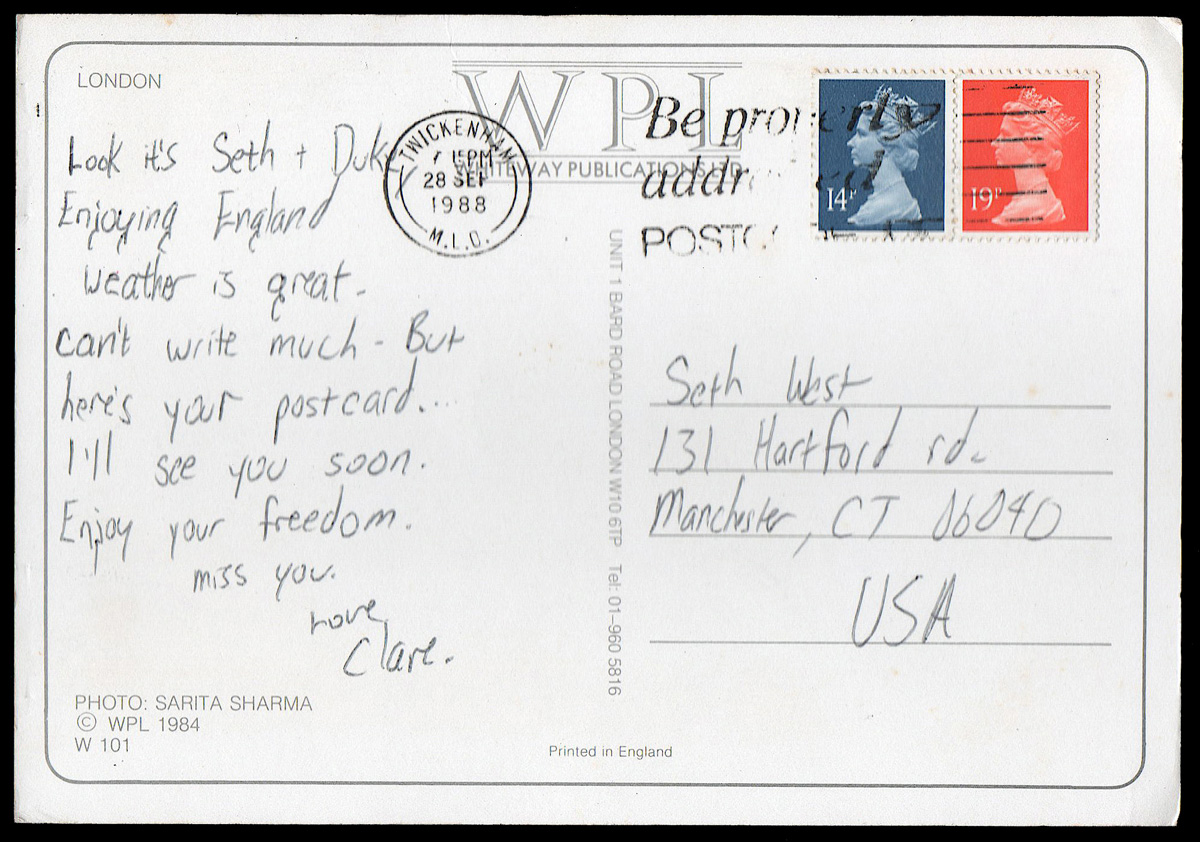 LONDON
Look it's Seth + Duke
Enjoying England
Weather is great.
can't write much - But
here's your postcard...
I'll see you soon.
Enjoy your freedom.
miss you.
Love,
Clare.
PHOTO: SARITA SHARMA
© WPL 1984
W 101
Printed in England
WPL
WHITEWAY PUBLICATIONS LTD
UNIT 1 BARD ROAD LONDON W10 6TP Tel: 01-960 5816
TWICKENHAM
7 15PM
28 SEP
1988
M.L.O.
Be properly
POSTCODE
14P
19P
Seth West
131 Hartford rd.
Manchester, CT 06040
USA